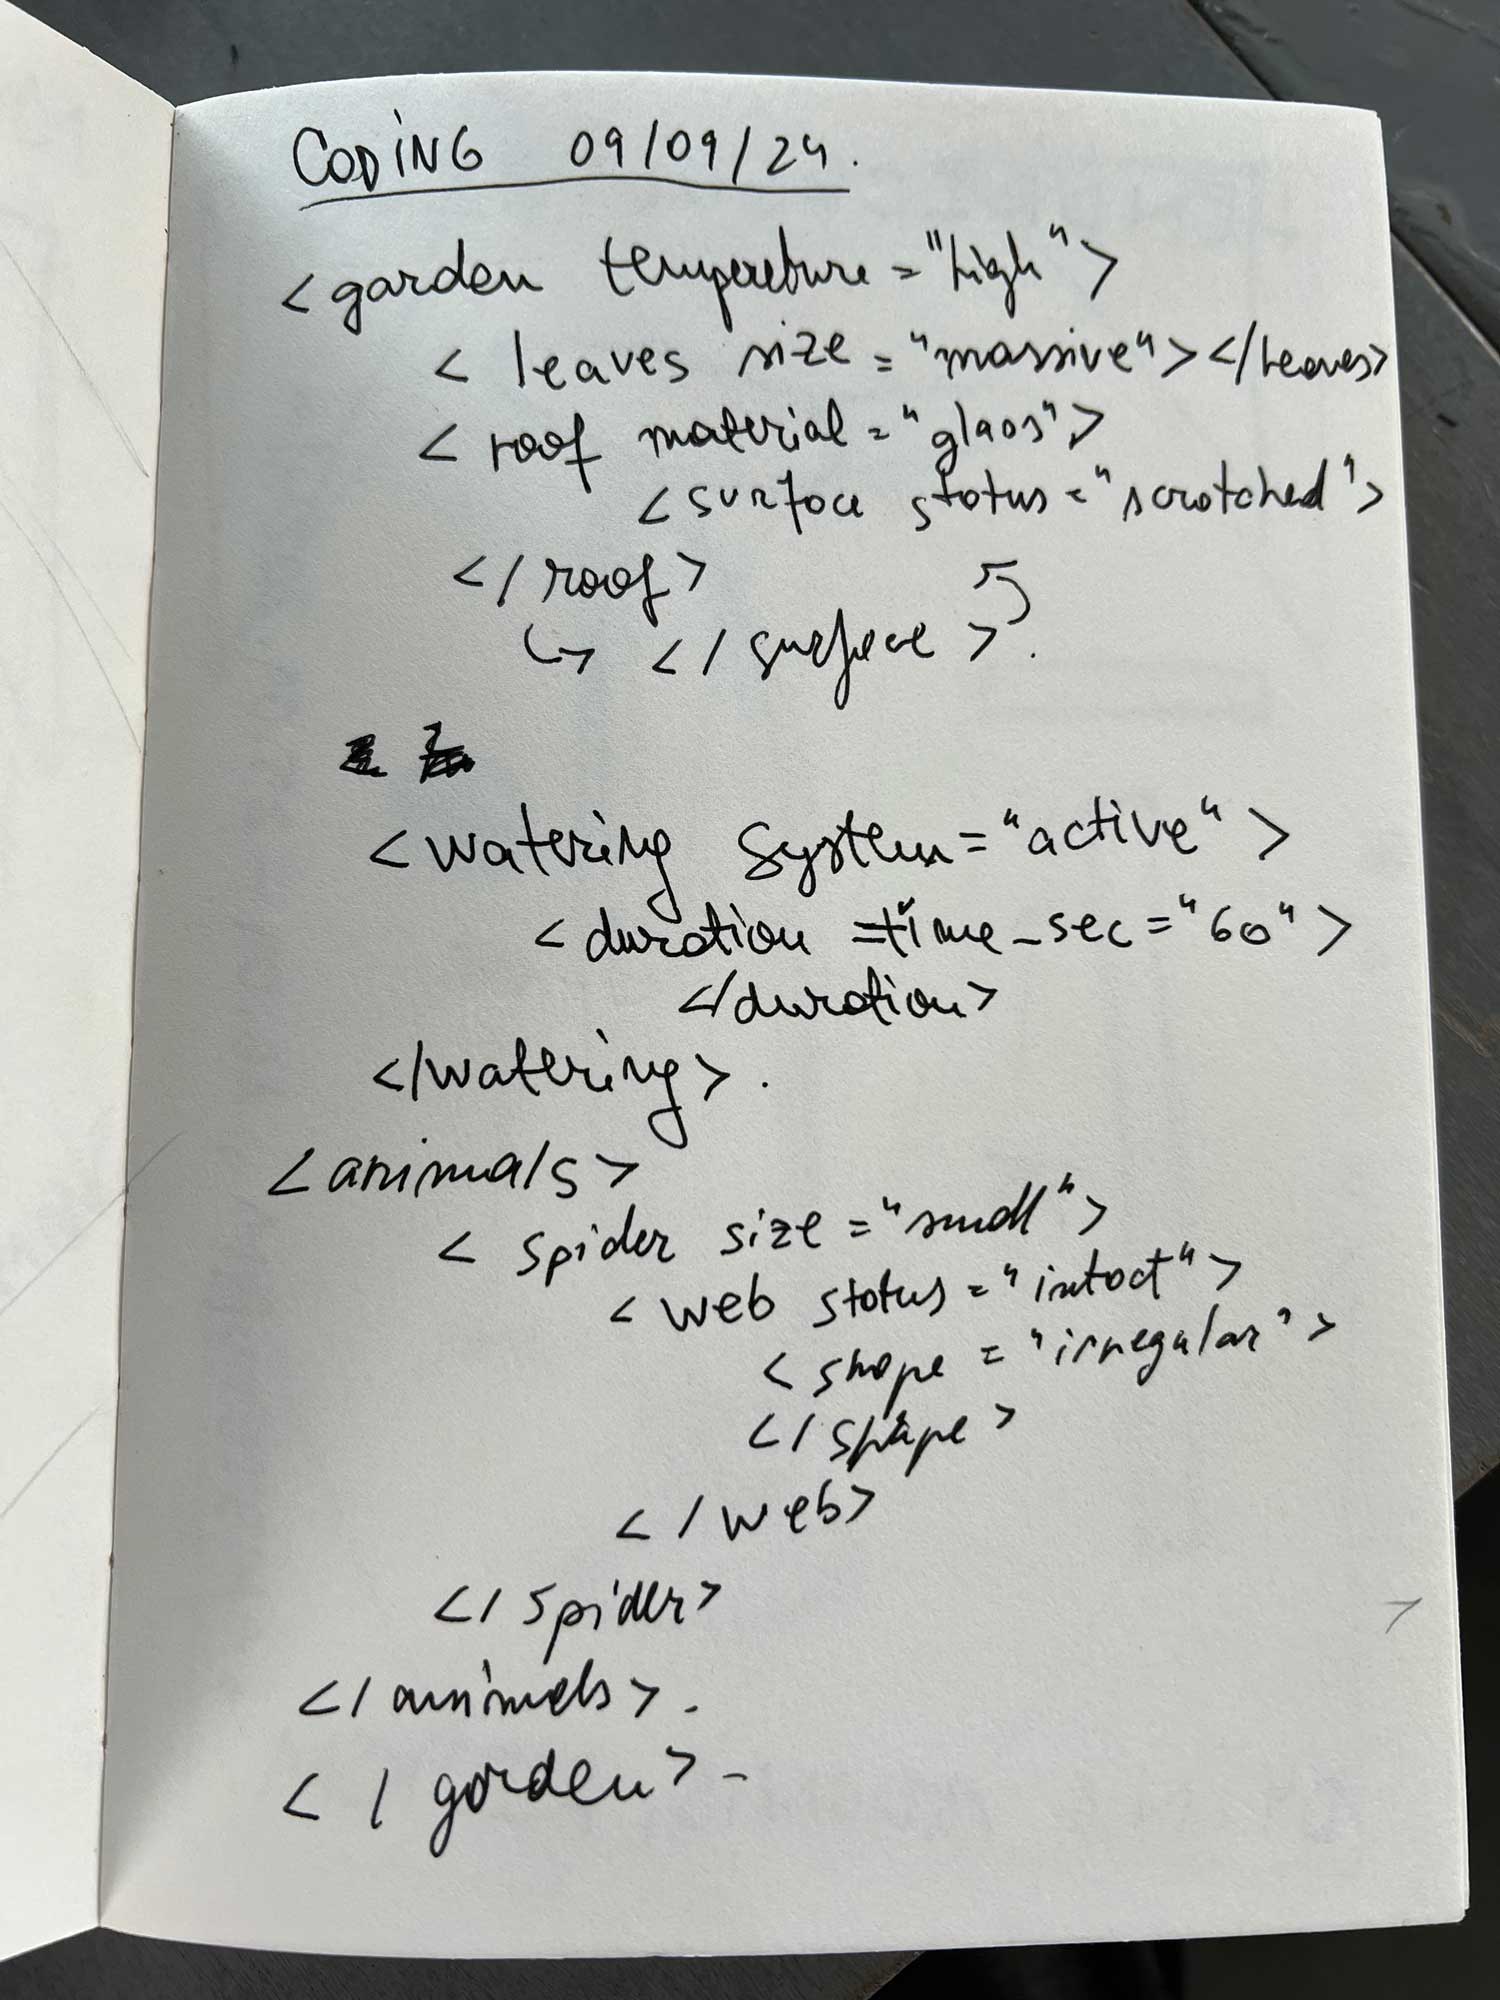 CODING 09/09/24.
<garden temperature="high">
<leaves size="massive"></leaves>
<roof material="glass">
<surface status="scratched">
</roof>
</surface>.
<watering system="active">
<duration time_sec="60">
</duration>
</watering>.
<animals>
<spider size="small">
<web status="intact">
<shape="irregular">
</shape>
</web>
</spider>
</animals>.
</garden>-